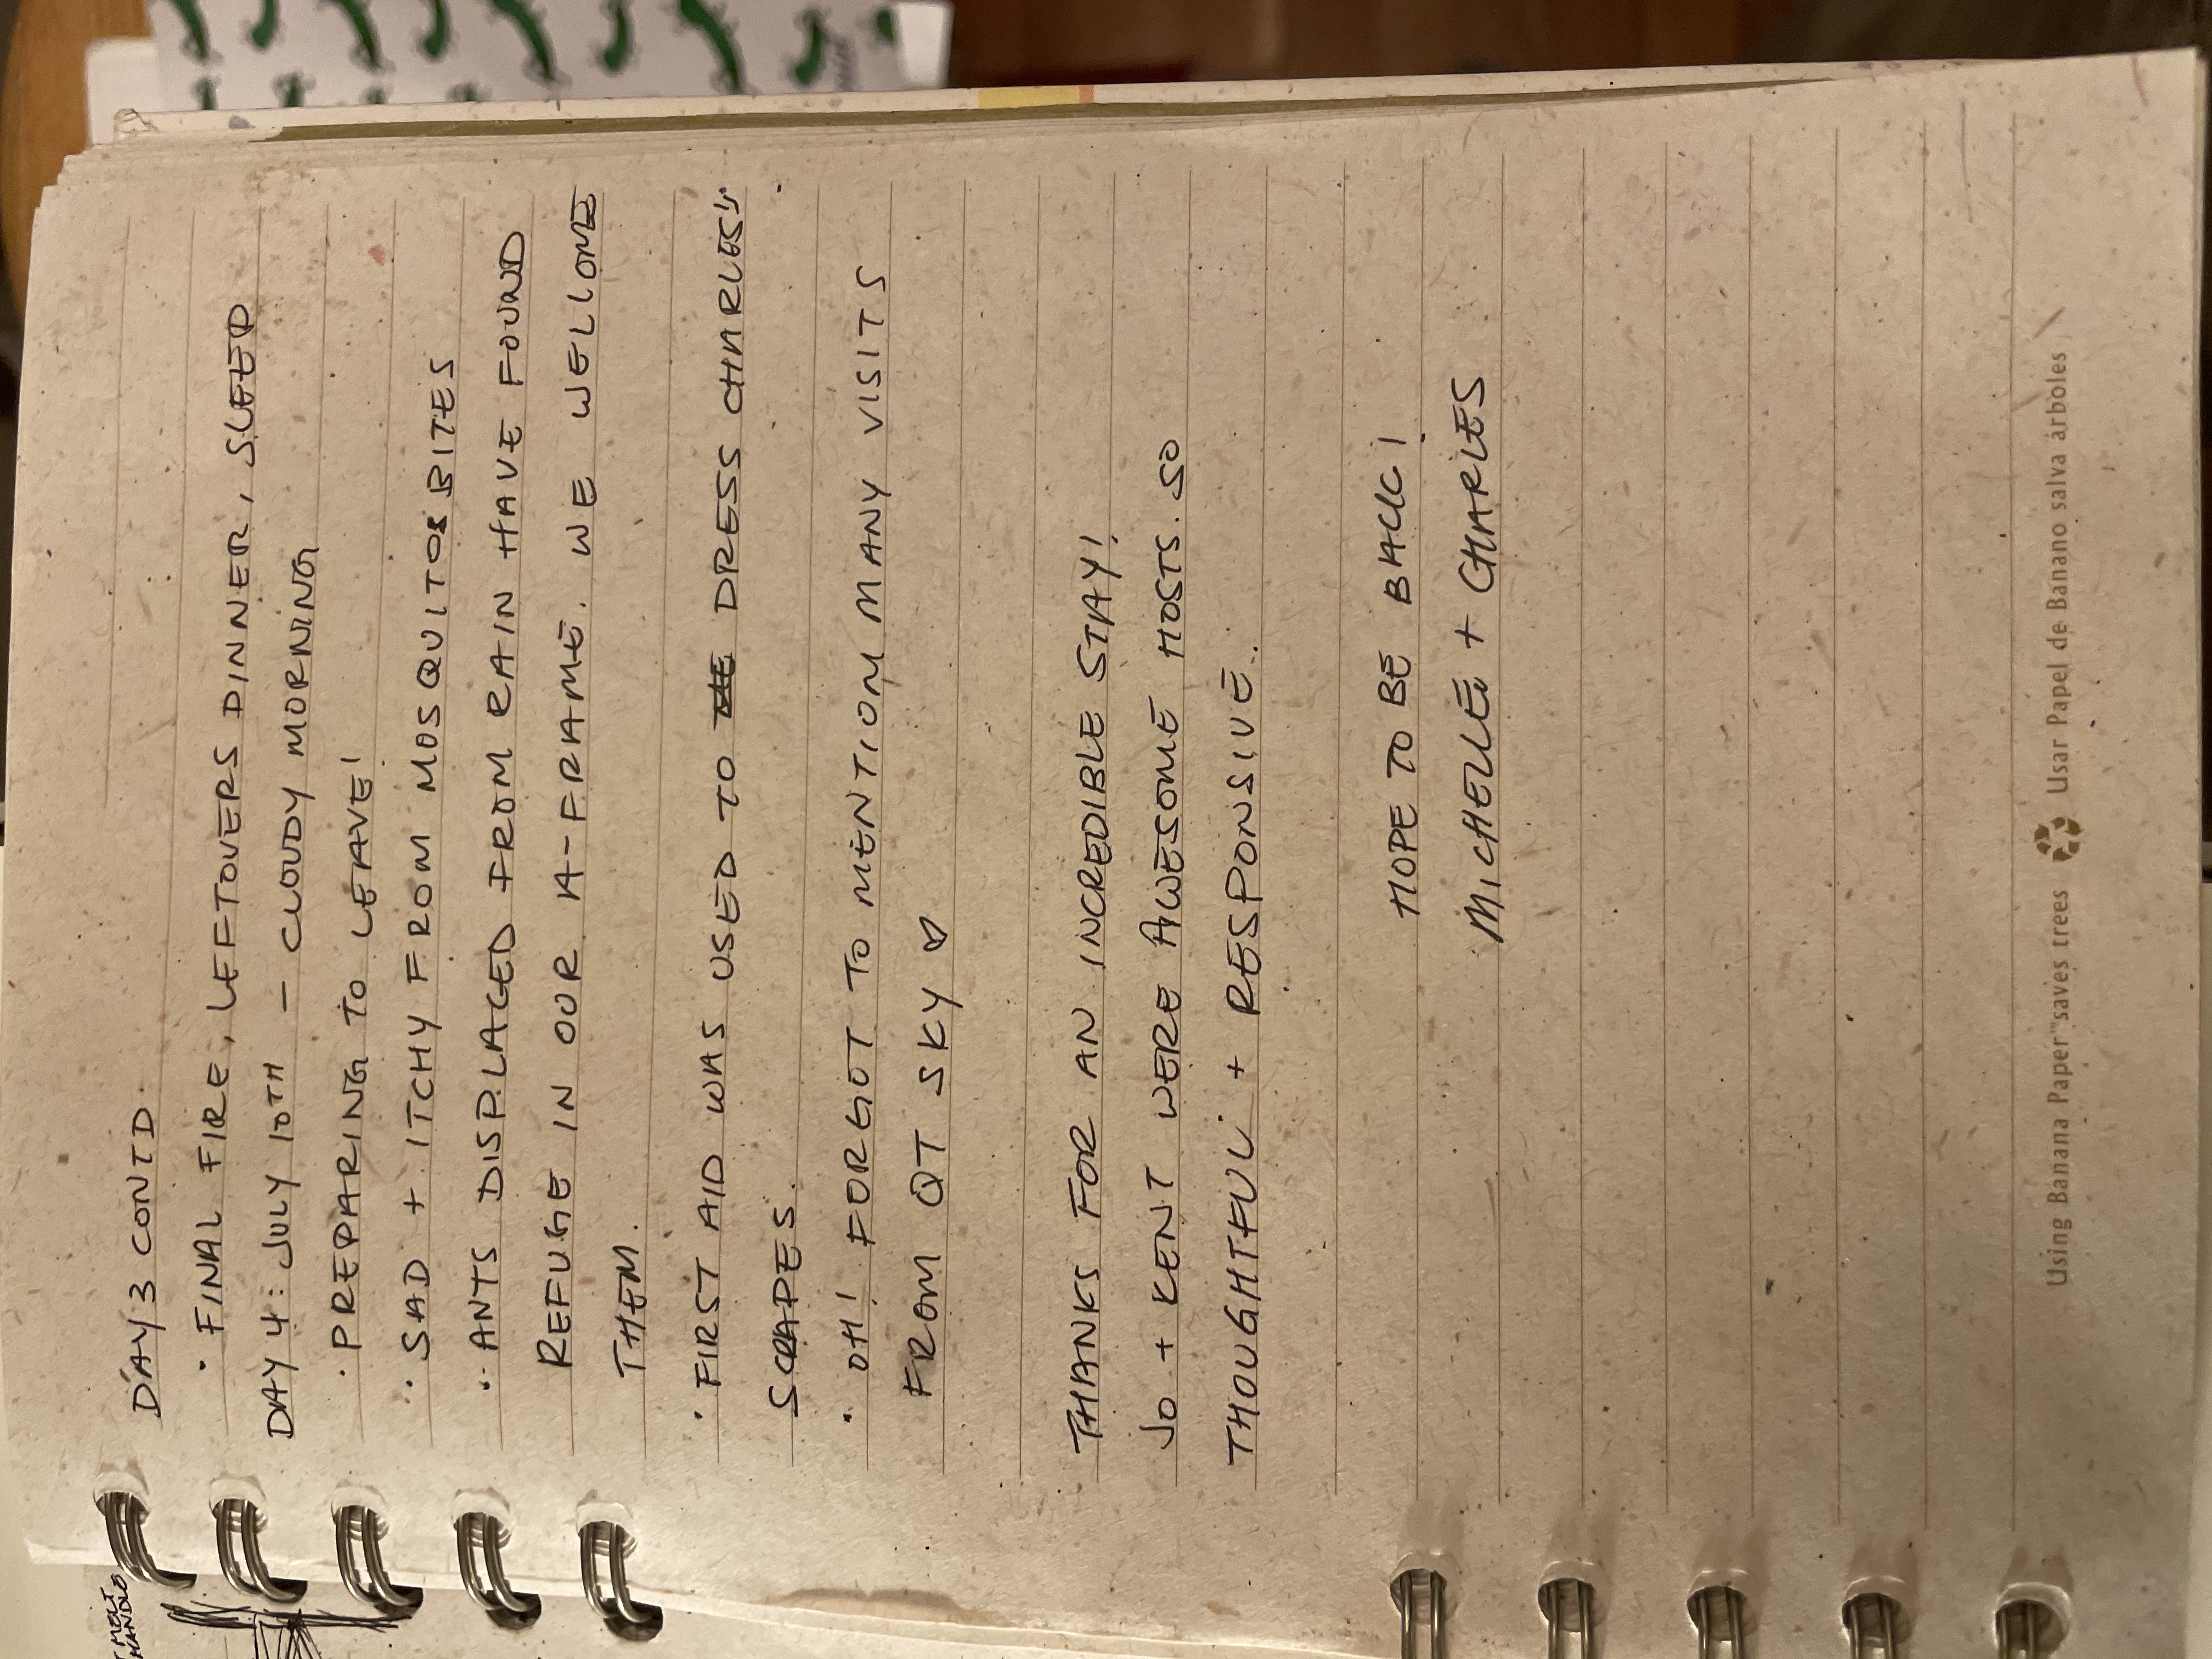 DAY 3 CONTD.
· FINAL FIRE, LEFTOVERS DINNER, SLEEP
DAY 4: JULY 10TH - CLOUDY MORNING
· PREPARING TO LEAVE!
· SAD + ITCHY FROM MOSQUITOS BITES
· ANTS DISPLACED FROM RAIN HAVE FOUND
REFUGE IN OUR A-FRAME. WE WELCOME
THEM.
· FIRST AID WAS USED TO DRESS CHARLES'
SCRAPES.
· OH! FORGOT TO MENTION MANY VISITS
FROM QT SKY ♡
THANKS FOR AN INCREDIBLE STAY!
JO + KENT WERE AWESOME HOSTS. SO
THOUGHTFUL + RESPONSIVE.
HOPE TO BE BACK!
MICHELLE + CHARLES
Using Banana Paper "saves trees Usar Papel de Banano salva árboles
MELT
HANDLE